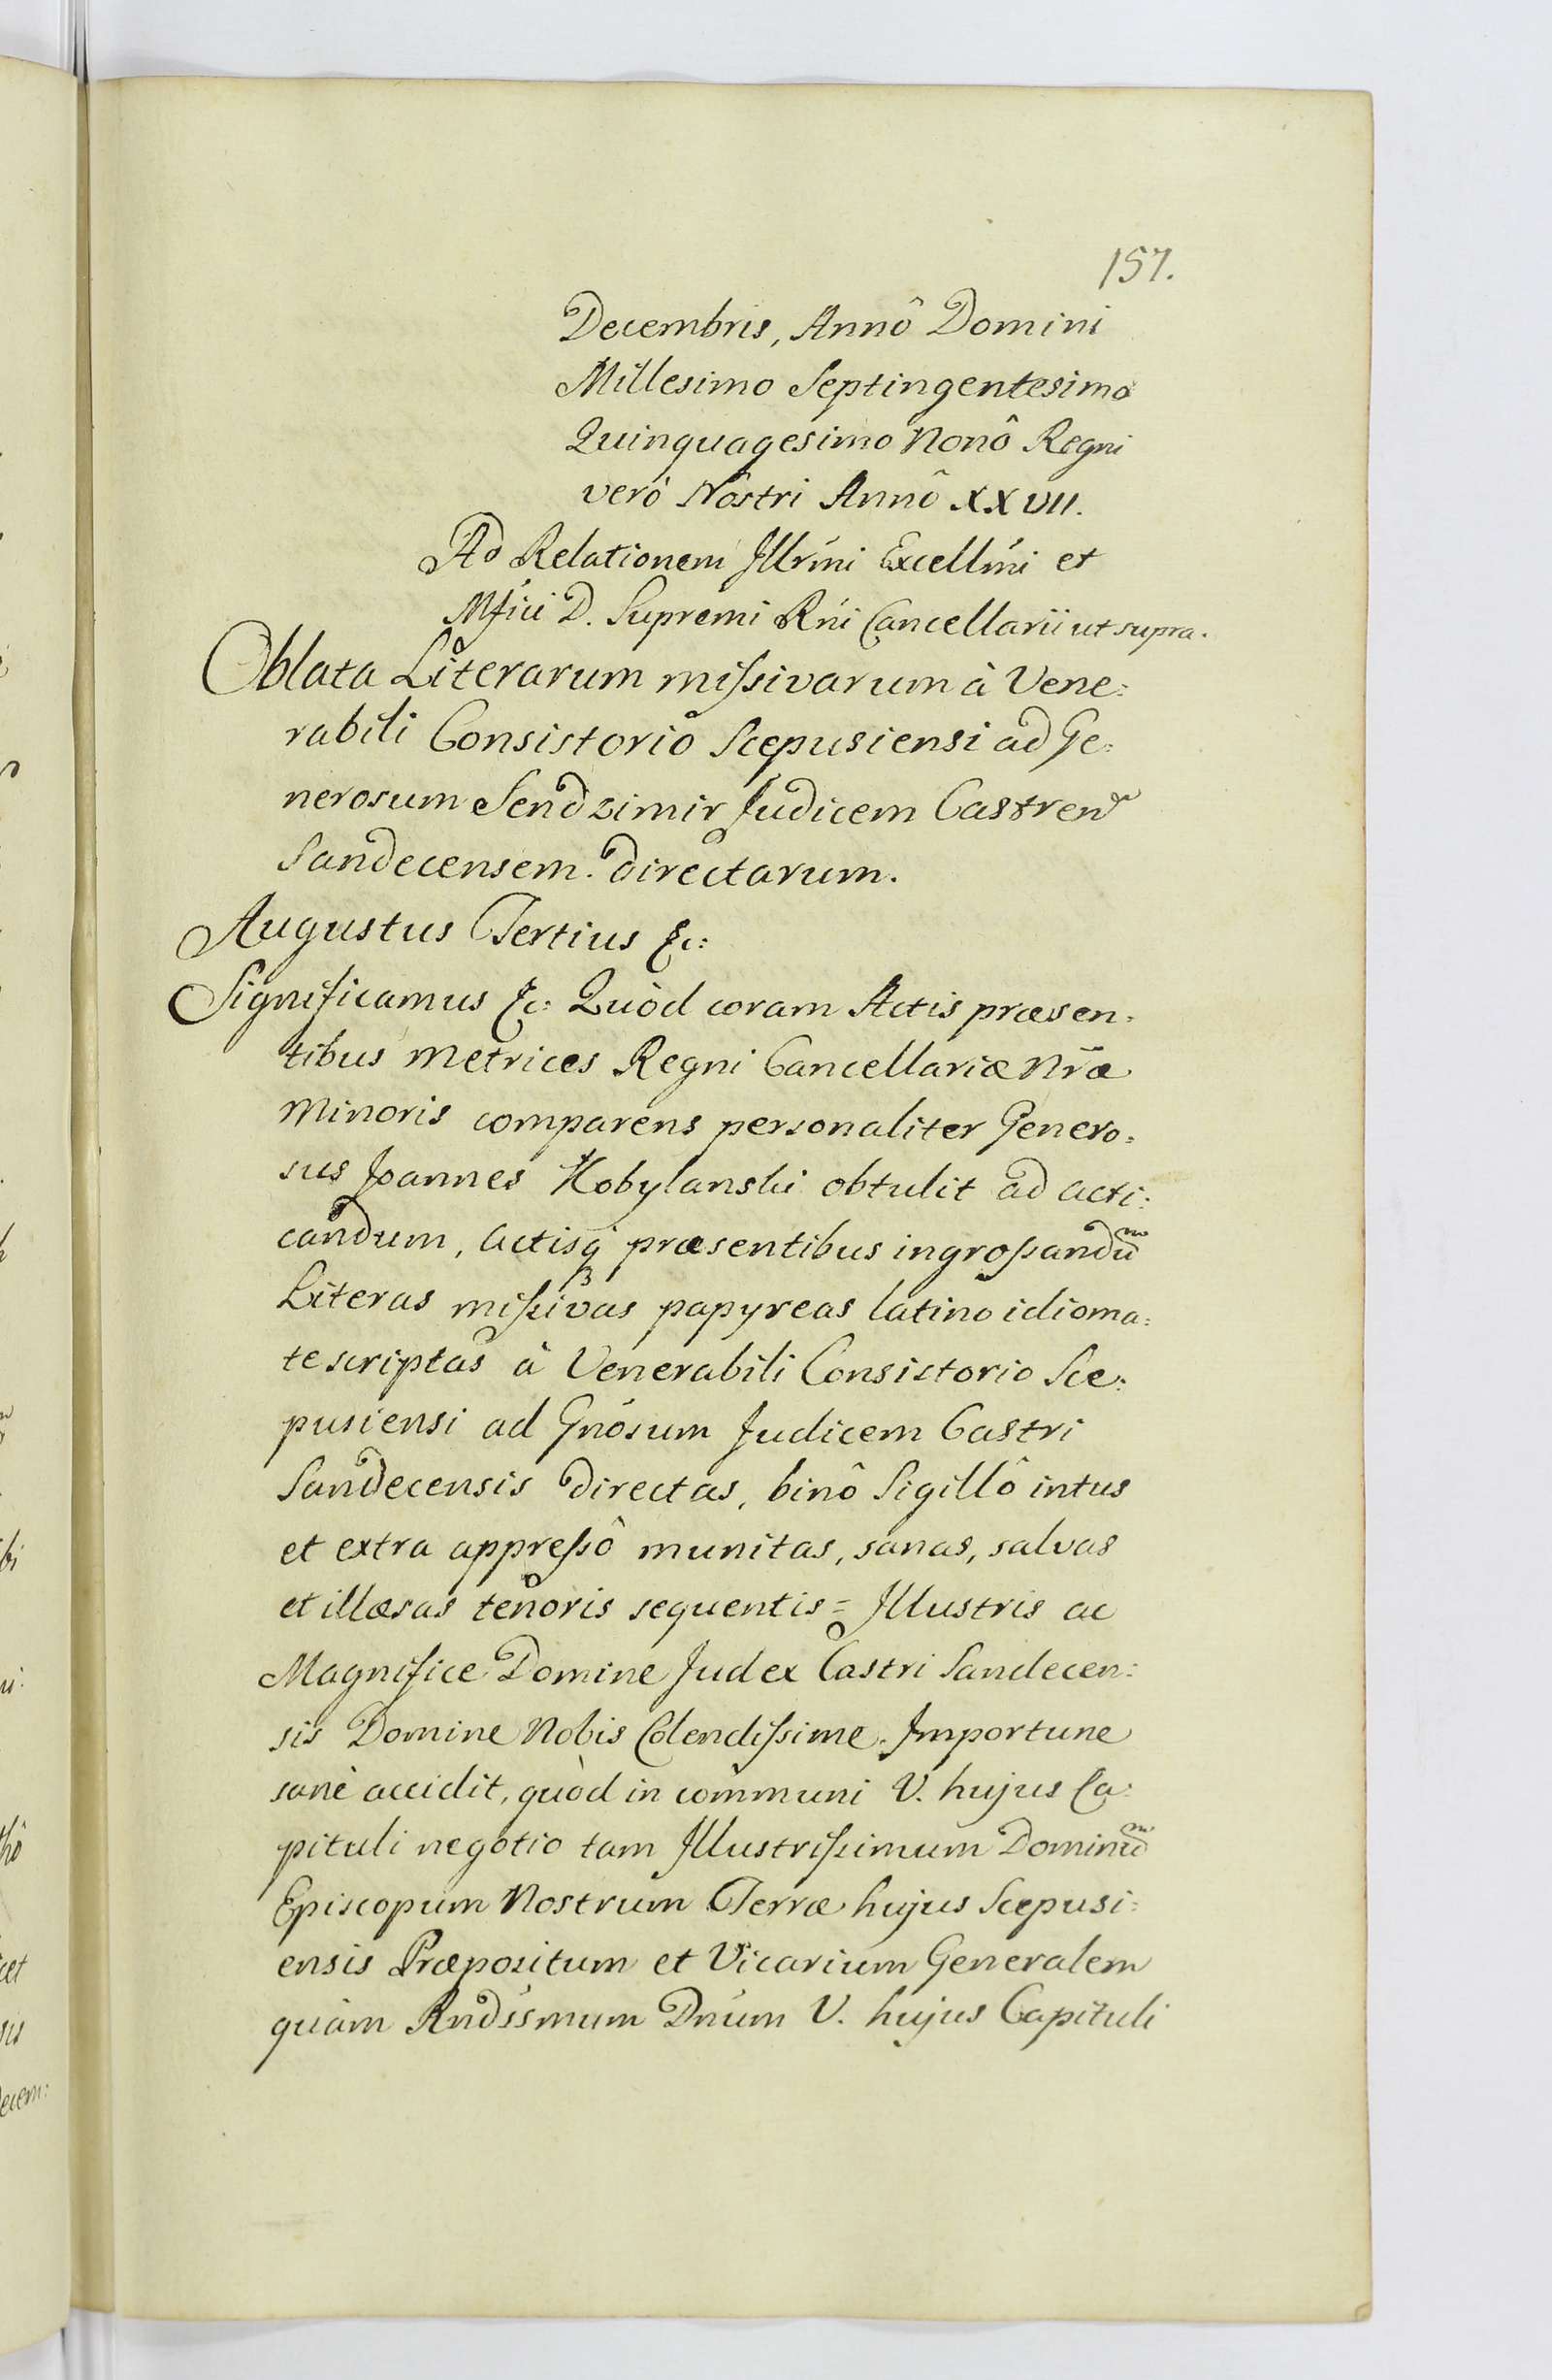 157.
Decembris, Annô Domini
Millesimo Septingentesimo
Quinquagesimo Nonô Regni
verò Nostri Annô XXVII.
Ad Relationem Jllrm̃i Excellm̃i et
Mfici D. Supremi Rńi Cancellarii ut supra.
Oblata Literarum mißivarum à Vene:
rabili Consistorio Scepusiensi ad Ge:
nerosum Sendzimir Judicem Castren
Sandecensem directarum.
Augustus Tertius &c:
Significamus &c: Quòd coram Actis præsen:
tibus Metrices Regni Cancellariæ Nr̃æ
Minoris comparens personaliter Genero:
sus Joannes Kobylanski obtulit ad acti:
candum, actisq́ præsentibus ingroßandum
Literas mißivas papyreas latino idioma:
te scriptas à Venerabili Consistorio Sce:
pusiensi ad Gnósum Judicem Castri
Sandecensis directas, binô Sigillô intus
et extra appreßô munitas, sanas, salvas
et illæsas tenoris sequentis = Jllustris ac
Magnifice Domine Judex Castri Sandecen:
sis Domine Nobis Colendißime. Importune
sanè accidit, quòd in communi V. hujus Ca:
pituli negotio tam Jllustrißimum Dominum
Episcopum Nostrum Terræ hujus Scepusi:
ensis Præpositum et Vicarium Generalem
quàm Rndśsmum Dnúm V. hujus Capituli